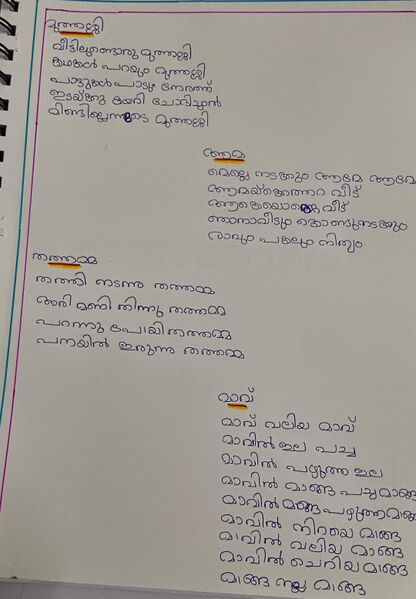 മുത്തശ്ശി
വീട്ടിലുണ്ടൊരു മുത്തശ്ശി
കഥകൾ പറയും മുത്തശ്ശി
പാട്ടുകൾ പാടും നേരത്ത്
ഇടയ്ക്കു കയറി ചോദിച്ചാൽ
മിണ്ടില്ലെന്നുടെ മുത്തശ്ശി
ആമ
മെല്ലെ നടക്കും ആമേ ആമേ
ആമയ്ക്കെത്ര വീട്
ആകെയൊരു വീട്
ഞാനാവീടും കൊണ്ടുനടക്കും
രാവും പകലും നിത്യം
തത്തമ്മ
തത്തി നടന്നു തത്തമ്മ
അരി മണി തിന്നു തത്തമ്മ
പറന്നു പോയി തത്തമ്മ
പനയിൽ ഇരുന്നു തത്തമ്മ
മാവ്
മാവ് വലിയ മാവ്
മാവിൽ ഇല പച്ച
മാവിൽ പഴുത്ത ഇല
മാവിൽ മാങ്ങ പച്ചമാങ്ങ
മാവിൽ മാങ്ങ പഴുത്തമാങ്ങ
മാവിൽ നിറയെ മാങ്ങ
മാവിൽ വലിയ മാങ്ങ
മാവിൽ ചെറിയ മാങ്ങ
മാങ്ങ നല്ല മാങ്ങ